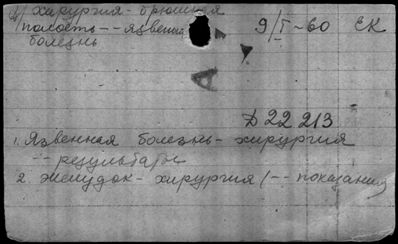 хирургия - брюшная
полость -- язвенная
болезнь
9/I-60 ЕК
Д 22 213
1. Язвенная болезнь - хирургия
-- результаты
2. Желудок - хирургия /-- показания